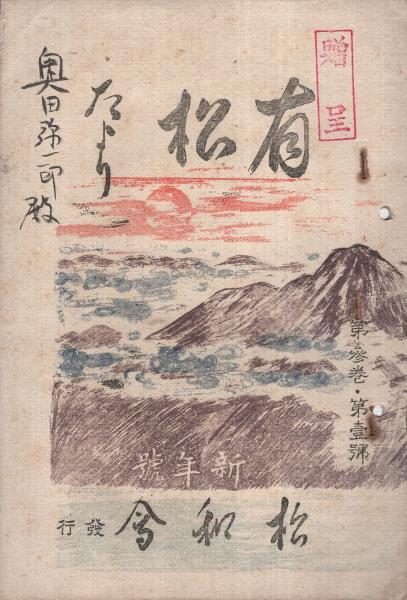 贈呈
有松
たより
奥田弥一郎殿
第參卷・第壹號
新年號
松和會
發行